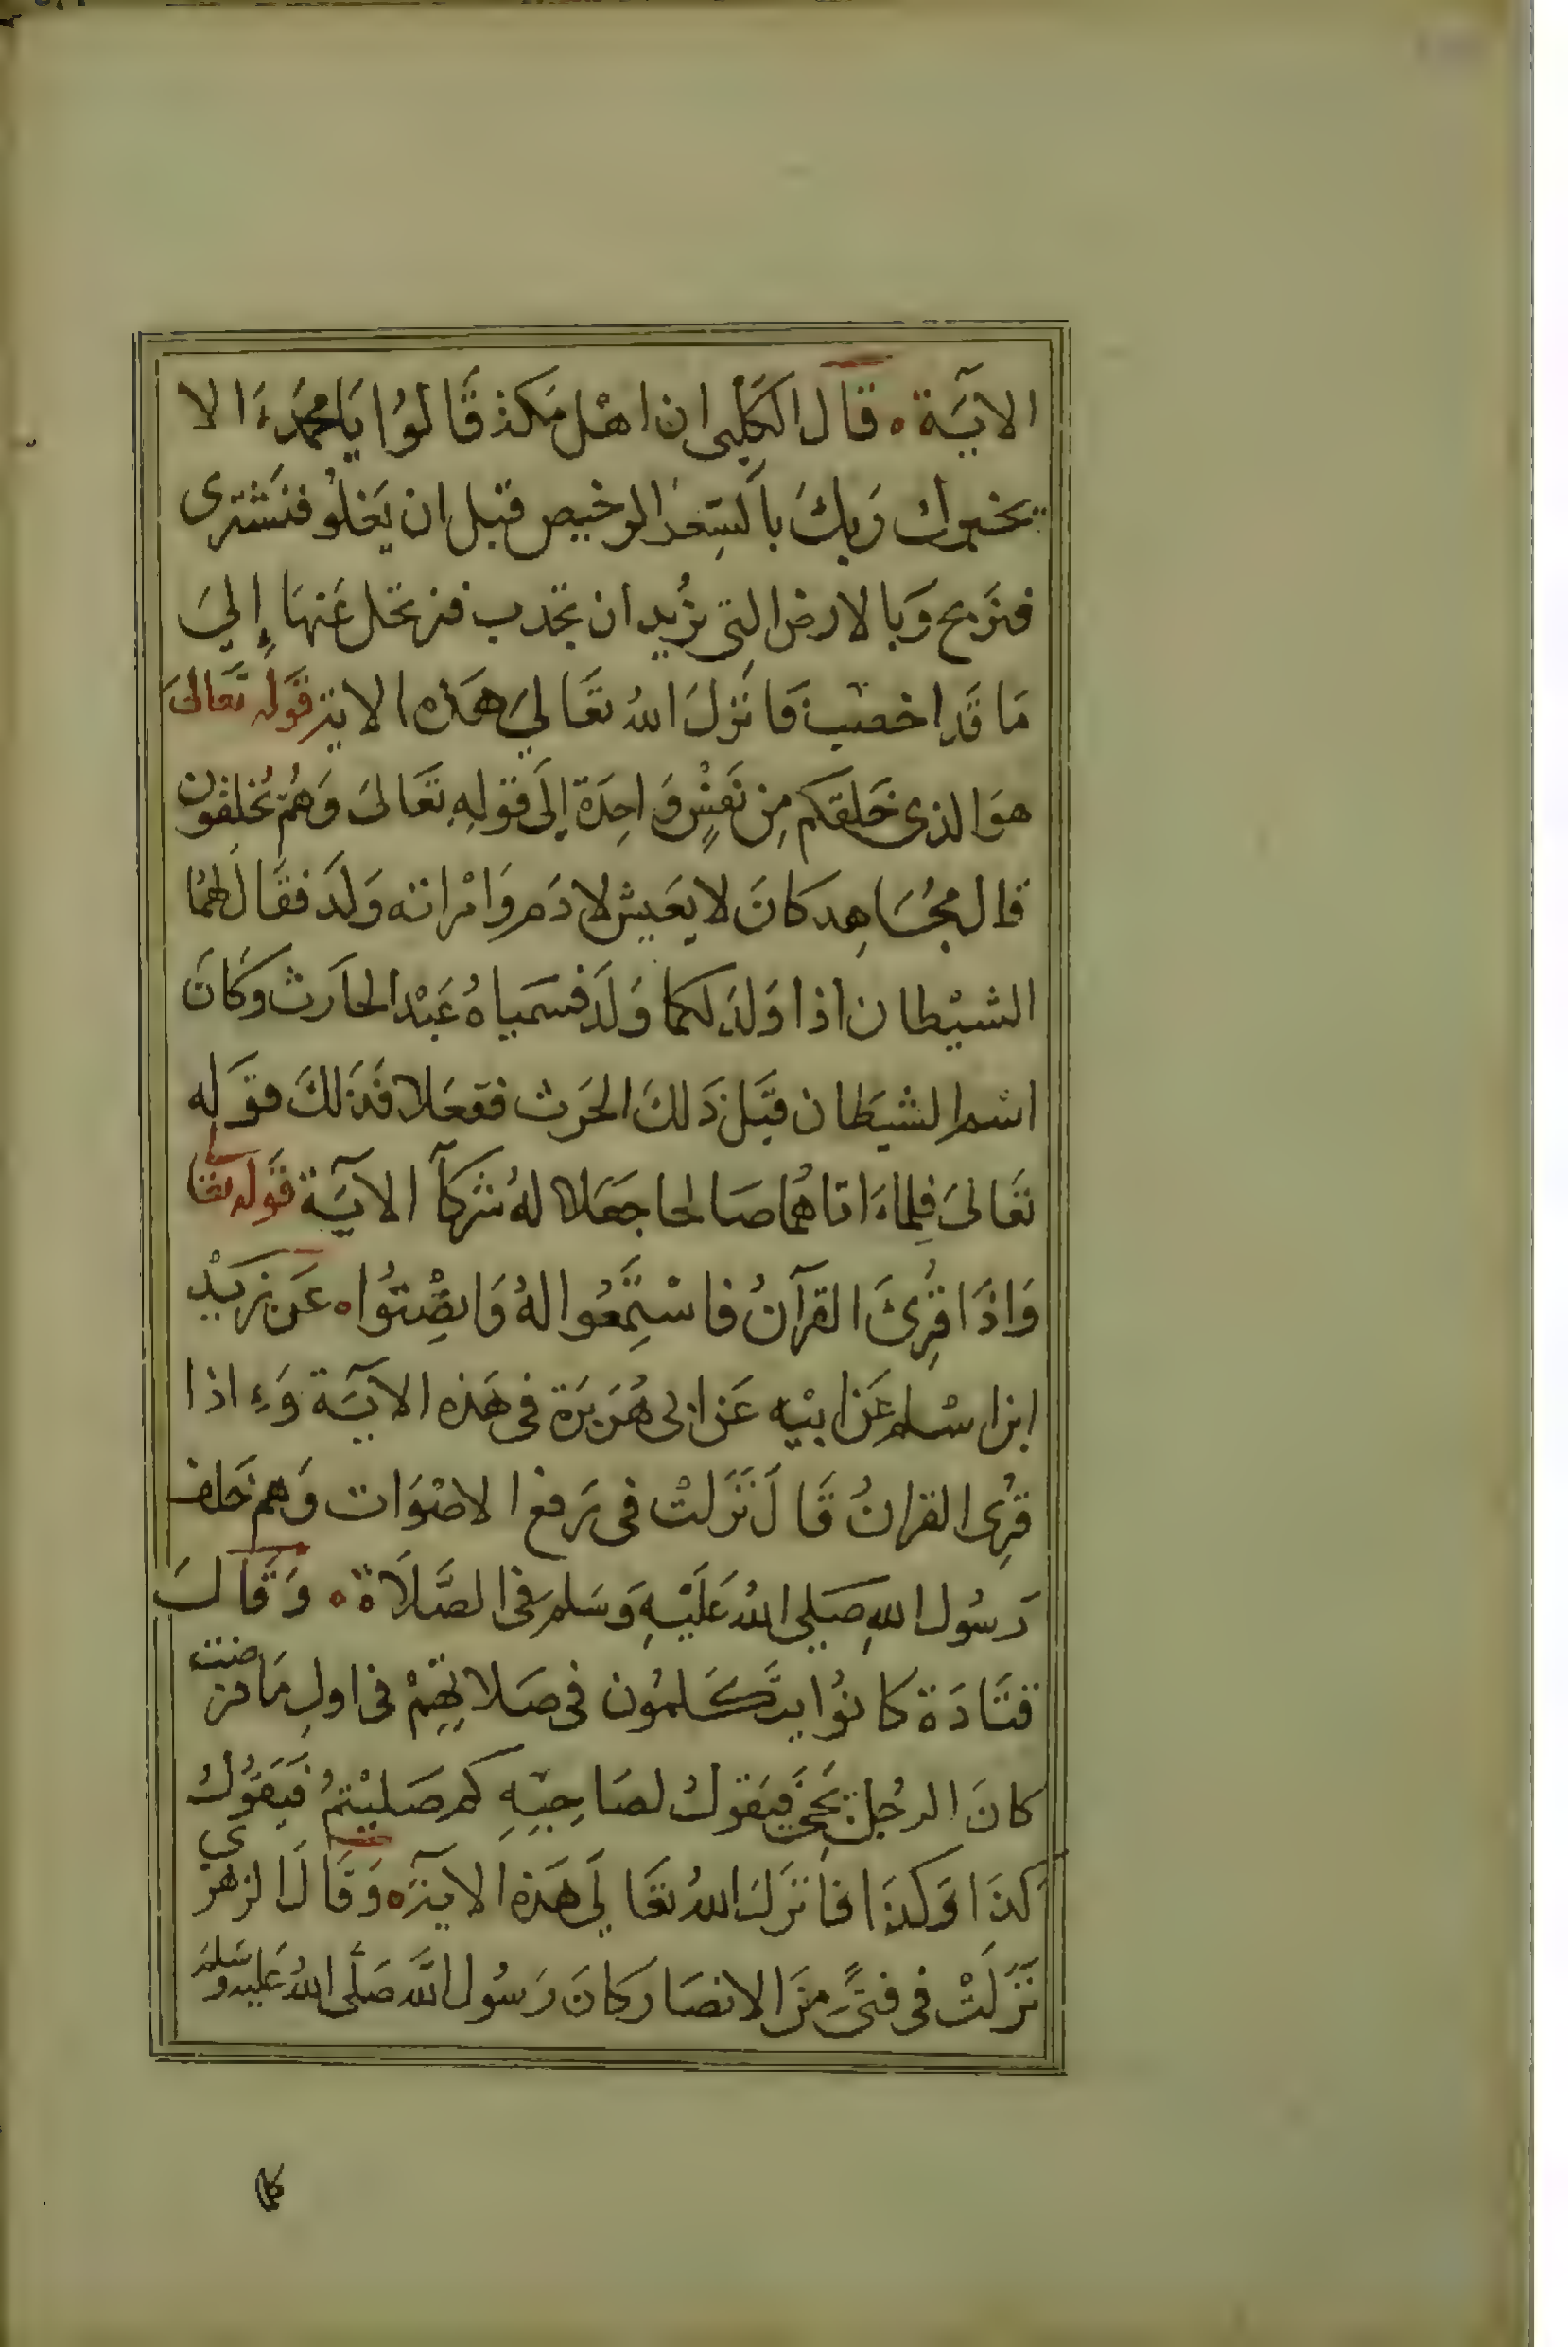 الآيَة ه قال الكَلبى ان اهْل مَكة قَالوُا يَا محمَّدءَ الا
يخبرك رَبكَ بالسِعرْ الرخيص قبل ان يَغلوُ فنَشترى
فنَربح وَبالارض التى نرُيد ان تجدب فنرتحل عَنهَا إِليَ
مَا قَد اخصب فَانَزلَ اللهُ تعَاليَ هَذه الاية قَوله تعَالىَ
هوَ الذى خَلقكم مِن نَفسٍْ وَاحِدَة إِلَى قوَلِهِ تعَالىَ وَهمُْ يُخلقون
قال مجُاهِد كانَ لا يعَيش لادَم وَامْراته وَلَد فقاَل لهمُا
الشيْطان اذا وَلدَ لكما وَلَد فسَمياهُ عَبْد الحاَرث وكَانَ
اسْم الشيطَان قبَلَ ذَلكَ الحَرث ففعَلا فَذَلكَ قوَله
تعَالىَ فلِماءَ اتاهمُا صَالحا جعَلا لهُ شركآ الآيَة قَوله تعَا
وَاذَا قرُِئَ القرآنُ فاسْتمَِعُوا لهُ وَانصِْتوُا ه عَن زَيَدْ
ابن اسْلم عَن ابيْه عَن ابى هُرَيرَة فى هَذه الآيَة وَءِ اذا
قرُِى القرانُ قاَلَ نَزَلتْ فى رَفع الاصْوَات وَهم خَلف
رَسُول اللهِ صَلى اللهُ عَلَيْهِ وَسَلم فى الصَّلاَة ه وَقَالَ
قتَادَة كانوُا يتَكَلموُن فى صَلاتهِِمْ فى اولِ مَا فرضت
كانَ الرجُل يَجئ فَيَقولُ لصَاحِبِهِ كم صَليْتمُ فَيَقوُلُ
كذَا وَكذَا فانَزلَ اللهُ تعَالَى هَذه الايَة ه وَقَالَ الزهرى
نَزَلَتْ فى فتىً منَ الانصَار كانَ رَسُول اللَّه صَلَّى اللهُ عَليه وسَلمَ
كلما